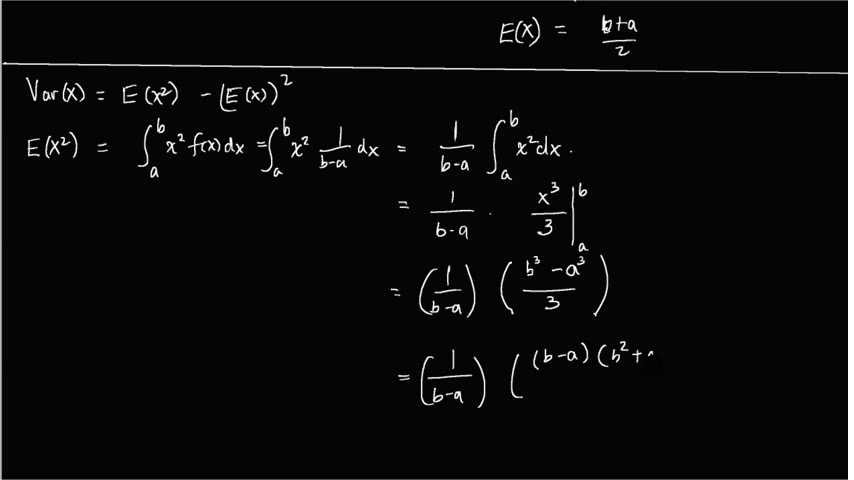 E(X) = b+a / 2
Var(x) = E(x²) - (E(x))²
E(X²) = ∫ₐᵇ x² f(x) dx = ∫ₐᵇ x² 1/(b-a) dx = 1/(b-a) ∫ₐᵇ x² dx.
= 1/(b-a) · x³/3 |ₐᵇ
= (1/(b-a)) ((b³ - a³)/3)
= (1/(b-a)) ( (b-a) (b² +